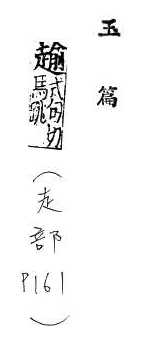 玉篇
式句切
馬跳
（走部
P161）